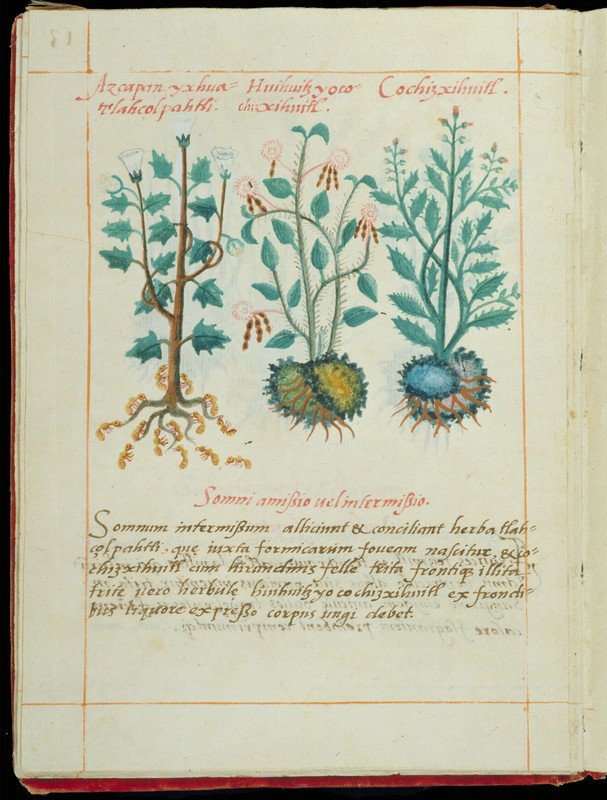 Azcapan yxhua= Huihuitzyoco= Cochizxihuitl.
tlahcolpahtli. chizxihuitl.
Somni amißio vel intermißio.
Somnum intermißum alliciunt & conciliant herba tlah=
çolpahtli, que iuxta formicarum foveam nascitur, & co=
chizxihuitl cum hirundinis felle trita frontiq illita.
trite vero herbule huihuitzyocochizxihuitl ex frondi=
bus liquore expreßo corpus ungi debet.